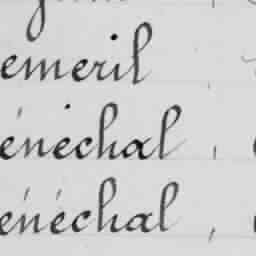 emeril
énéchal,
énéchal,